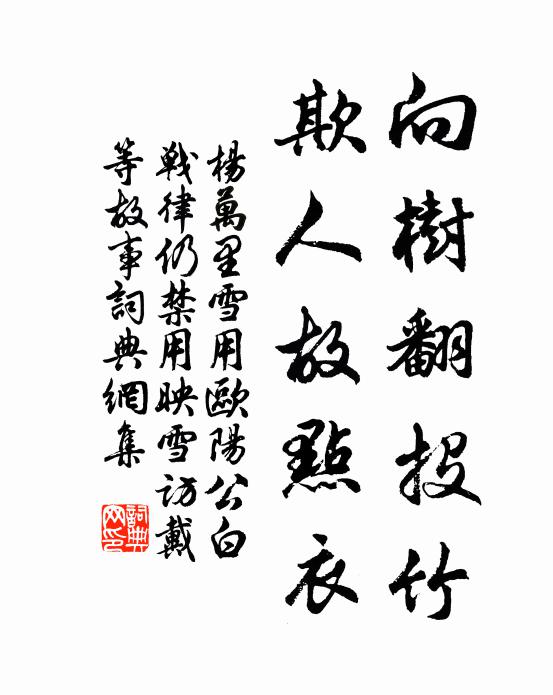 向樹翻投竹
欺人故點衣
楊萬里雪用歐陽公白
戰律仍禁用映雪訪戴
等故事詞典網集
詞典
网印